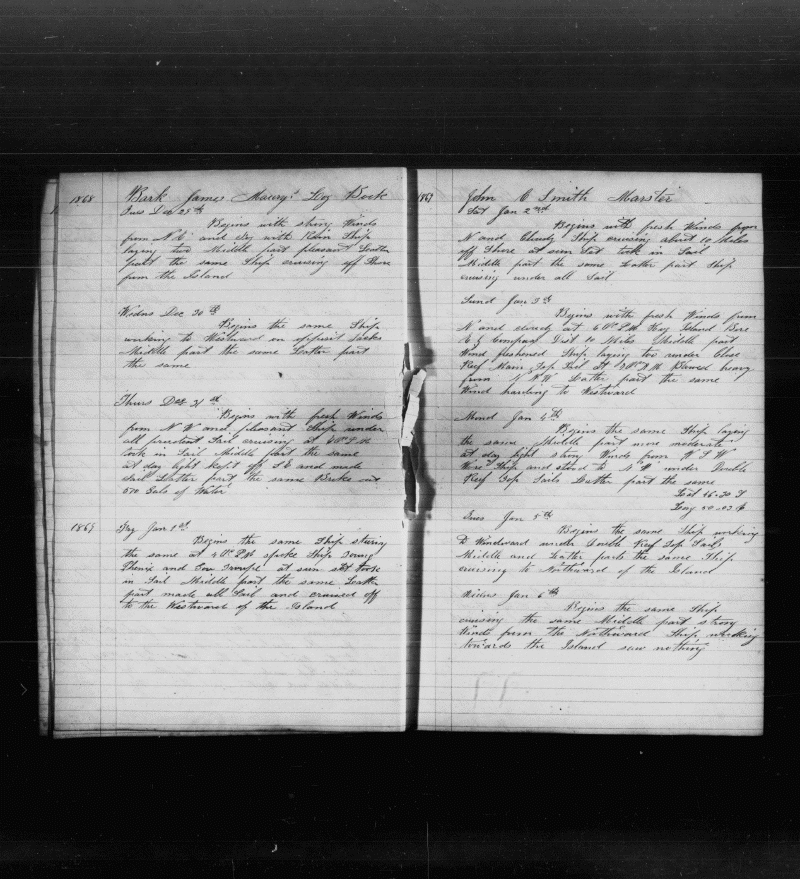 1868 Bark James Maury's Log Book
Tues Dec 29th
Begins with strong Winds
from N.E. and dry with Rain Ship
laying two Middle part pleasant Latter
part the same Ship cruising off Shore
from the Island
Widns Dec 30th
Begins the same Ship
working to Westward on opposit tacks
Middle part the same Latter part
the same
Thurs Dec 31st
Begins with fresh Winds
from N W and pleasant Ship under
all prudent Sail cruising at 6 P.M
took in Sail Middle part the same
at day light Kept off S.E and made
sail Latter part the same Broke out
570 Gals of Water
1869 Fry Jan 1st
Begins the same Ship stearing
the same at 4 P.M spoke Ship Young
Phenix and Gov Troupe at sun set took
in Sail Middle part the same Latter
part made all Sail and cruised off
to the Westward of the Island
1869 John C Smith Marster
Sat Jan 2nd
Begins with fresh Winds from
N and Cloudy Ship cruising about 10 Miles
off Shore at sun Set took in Sail
Middle part the same Latter part Ship
cruising under all Sail
Sund Jan 3th
Begins with fresh Winds from
N and cloudy at 6 P.M Hey Island Bore
Compas Dist 10 Miles Middle part
Wind freshened Ship laying too under Close
Reef Main Top Sail at P.M Blowed heavy
from N.W Latter part the same
Wind harling to Westward
Mond Jan 4th
Begins the same Ship laying
the same Middle part more moderate
at day light strong Winds from W.S.W
Wore Ship and stood to N W under Double
Reef Top Sails Latter part the same
Lat 46-30 S
Long 50-03 E
Tues Jan 5th
Begins the same Ship working
to Windward under Double Reef Top Sails
Middle and Latter parts the same Ship
cruising to Northward of the Island
Widns Jan 6th
Begins the same Ship
cruising the same Middle part strong
Winds from the Northward Ship working
towards the Island saw nothing